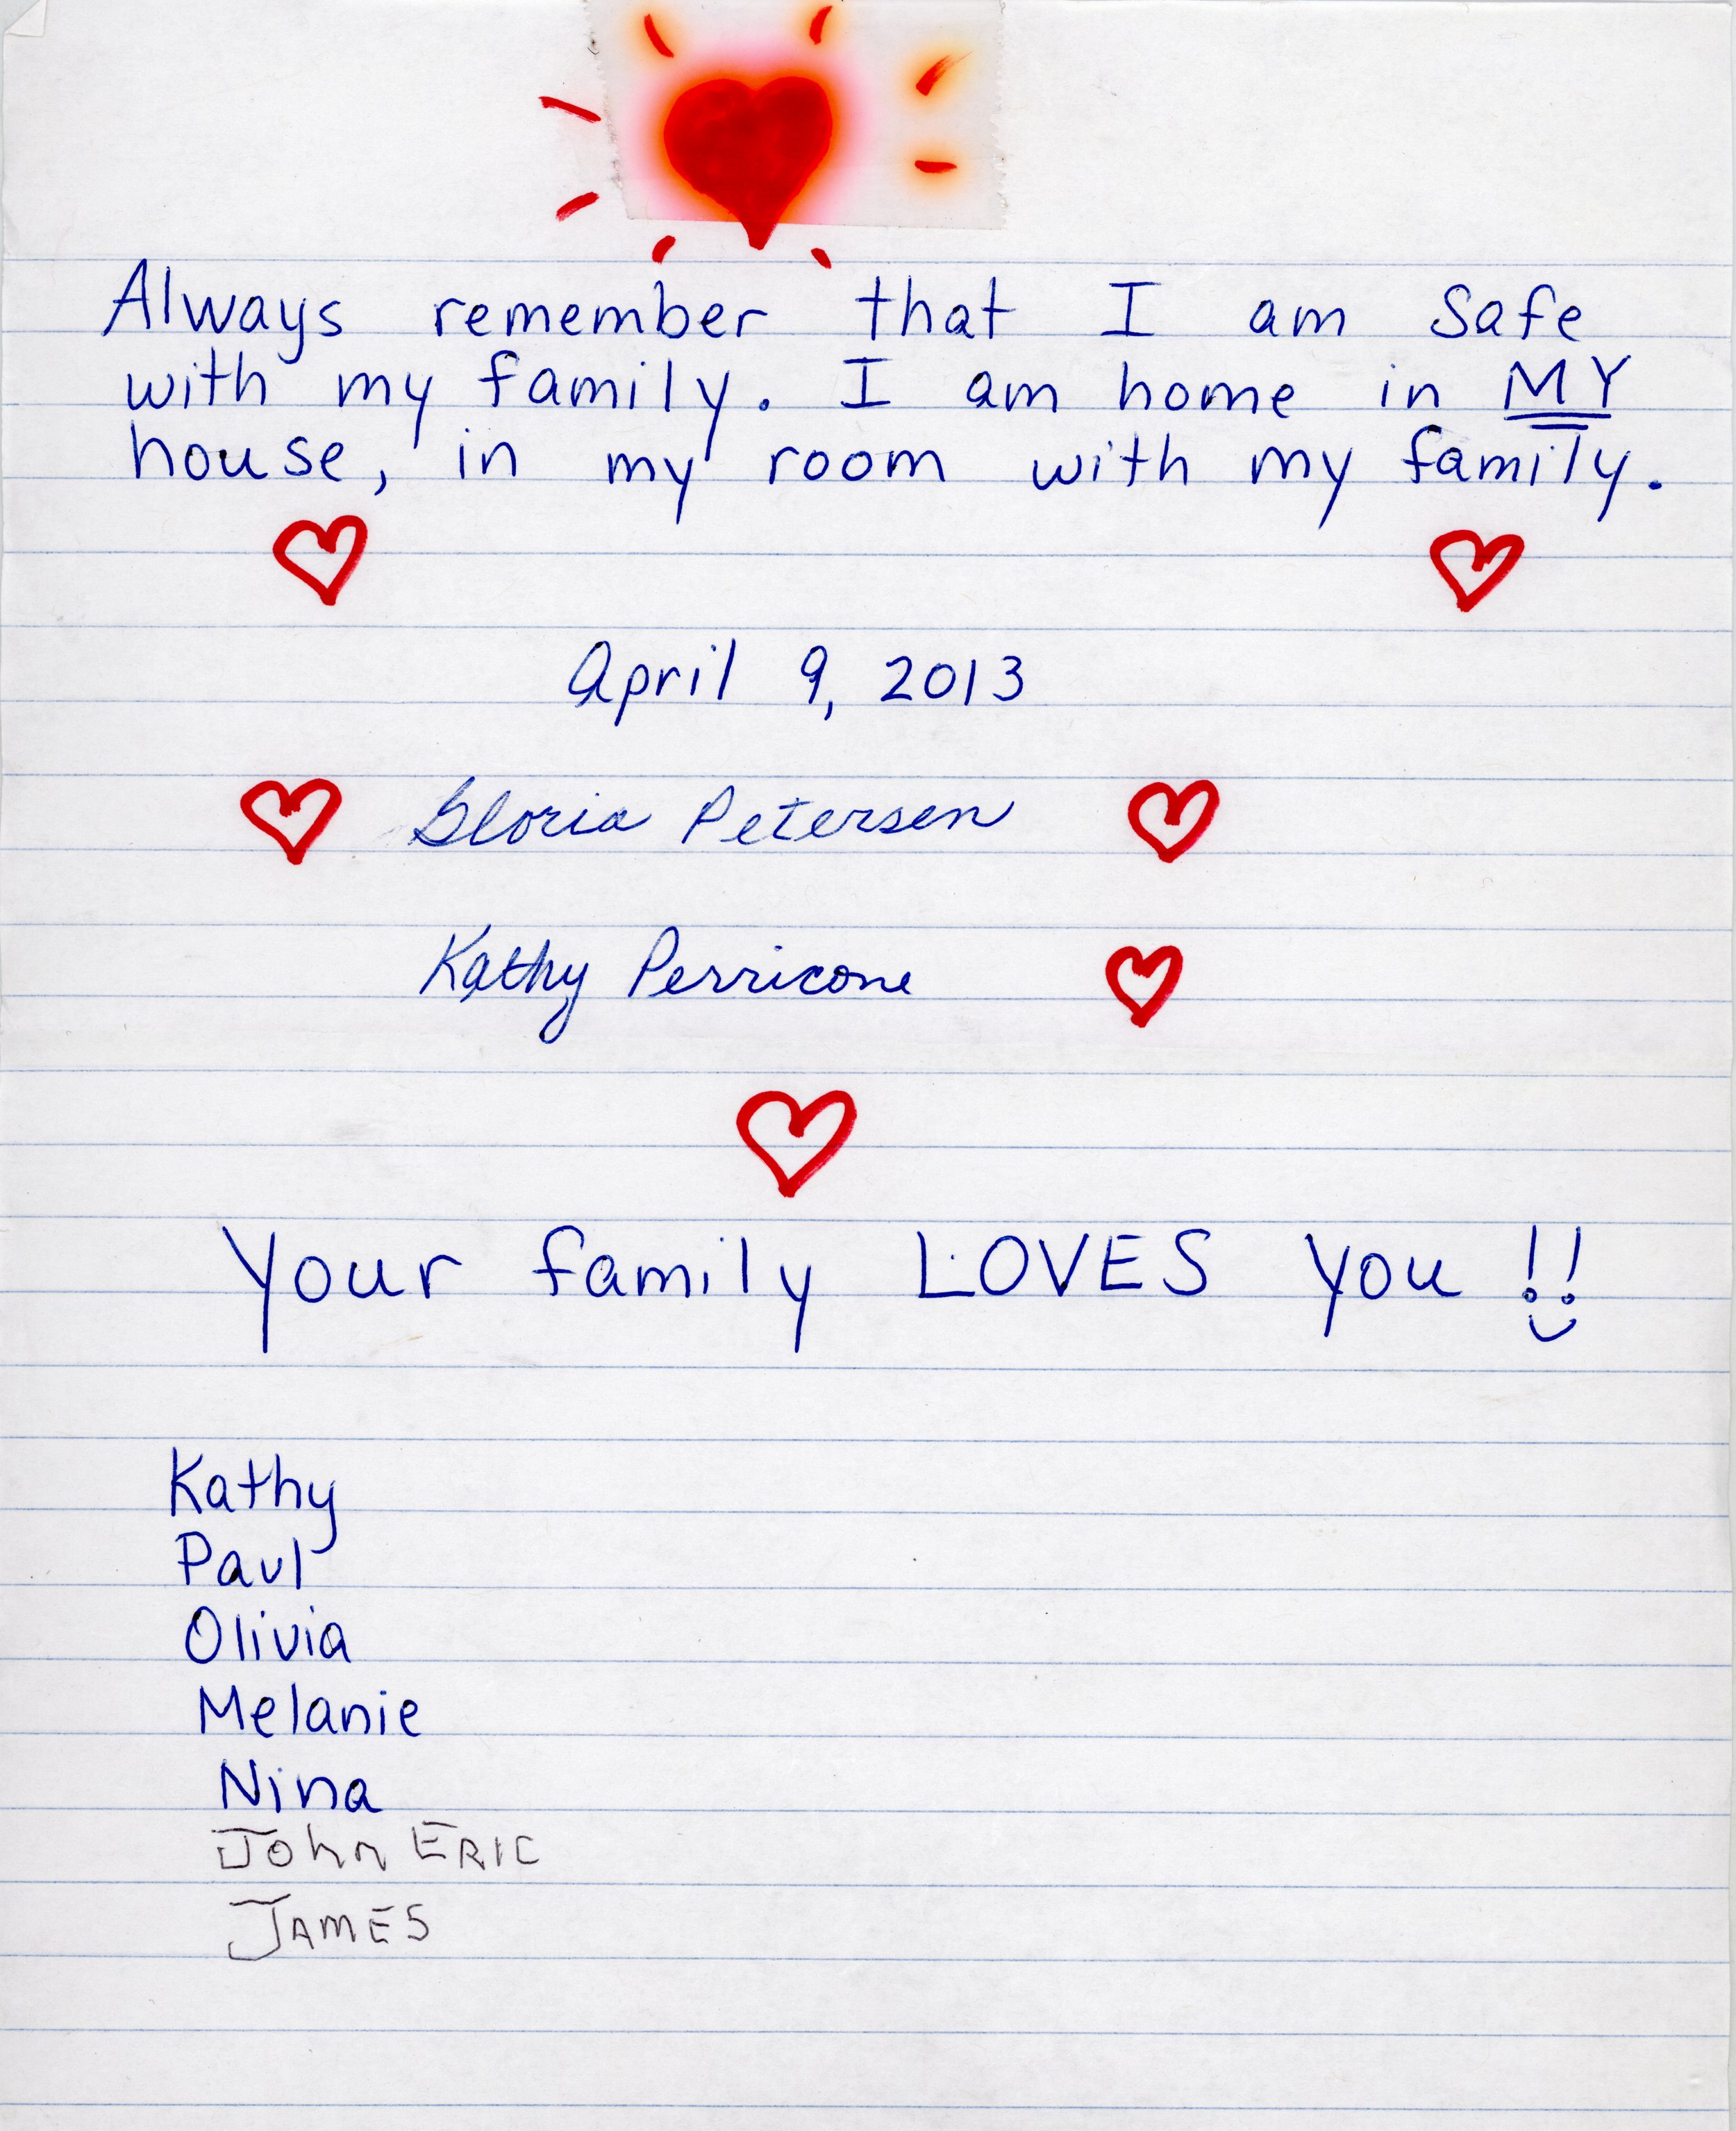 Always remember that I am safe
with my family. I am home in MY
house, in my room with my family.
April 9, 2013
Gloria Petersen
Kathy Perricone
Your family LOVES you !!
Kathy
Paul
Olivia
Melanie
Nina
John ERIC
JAMES